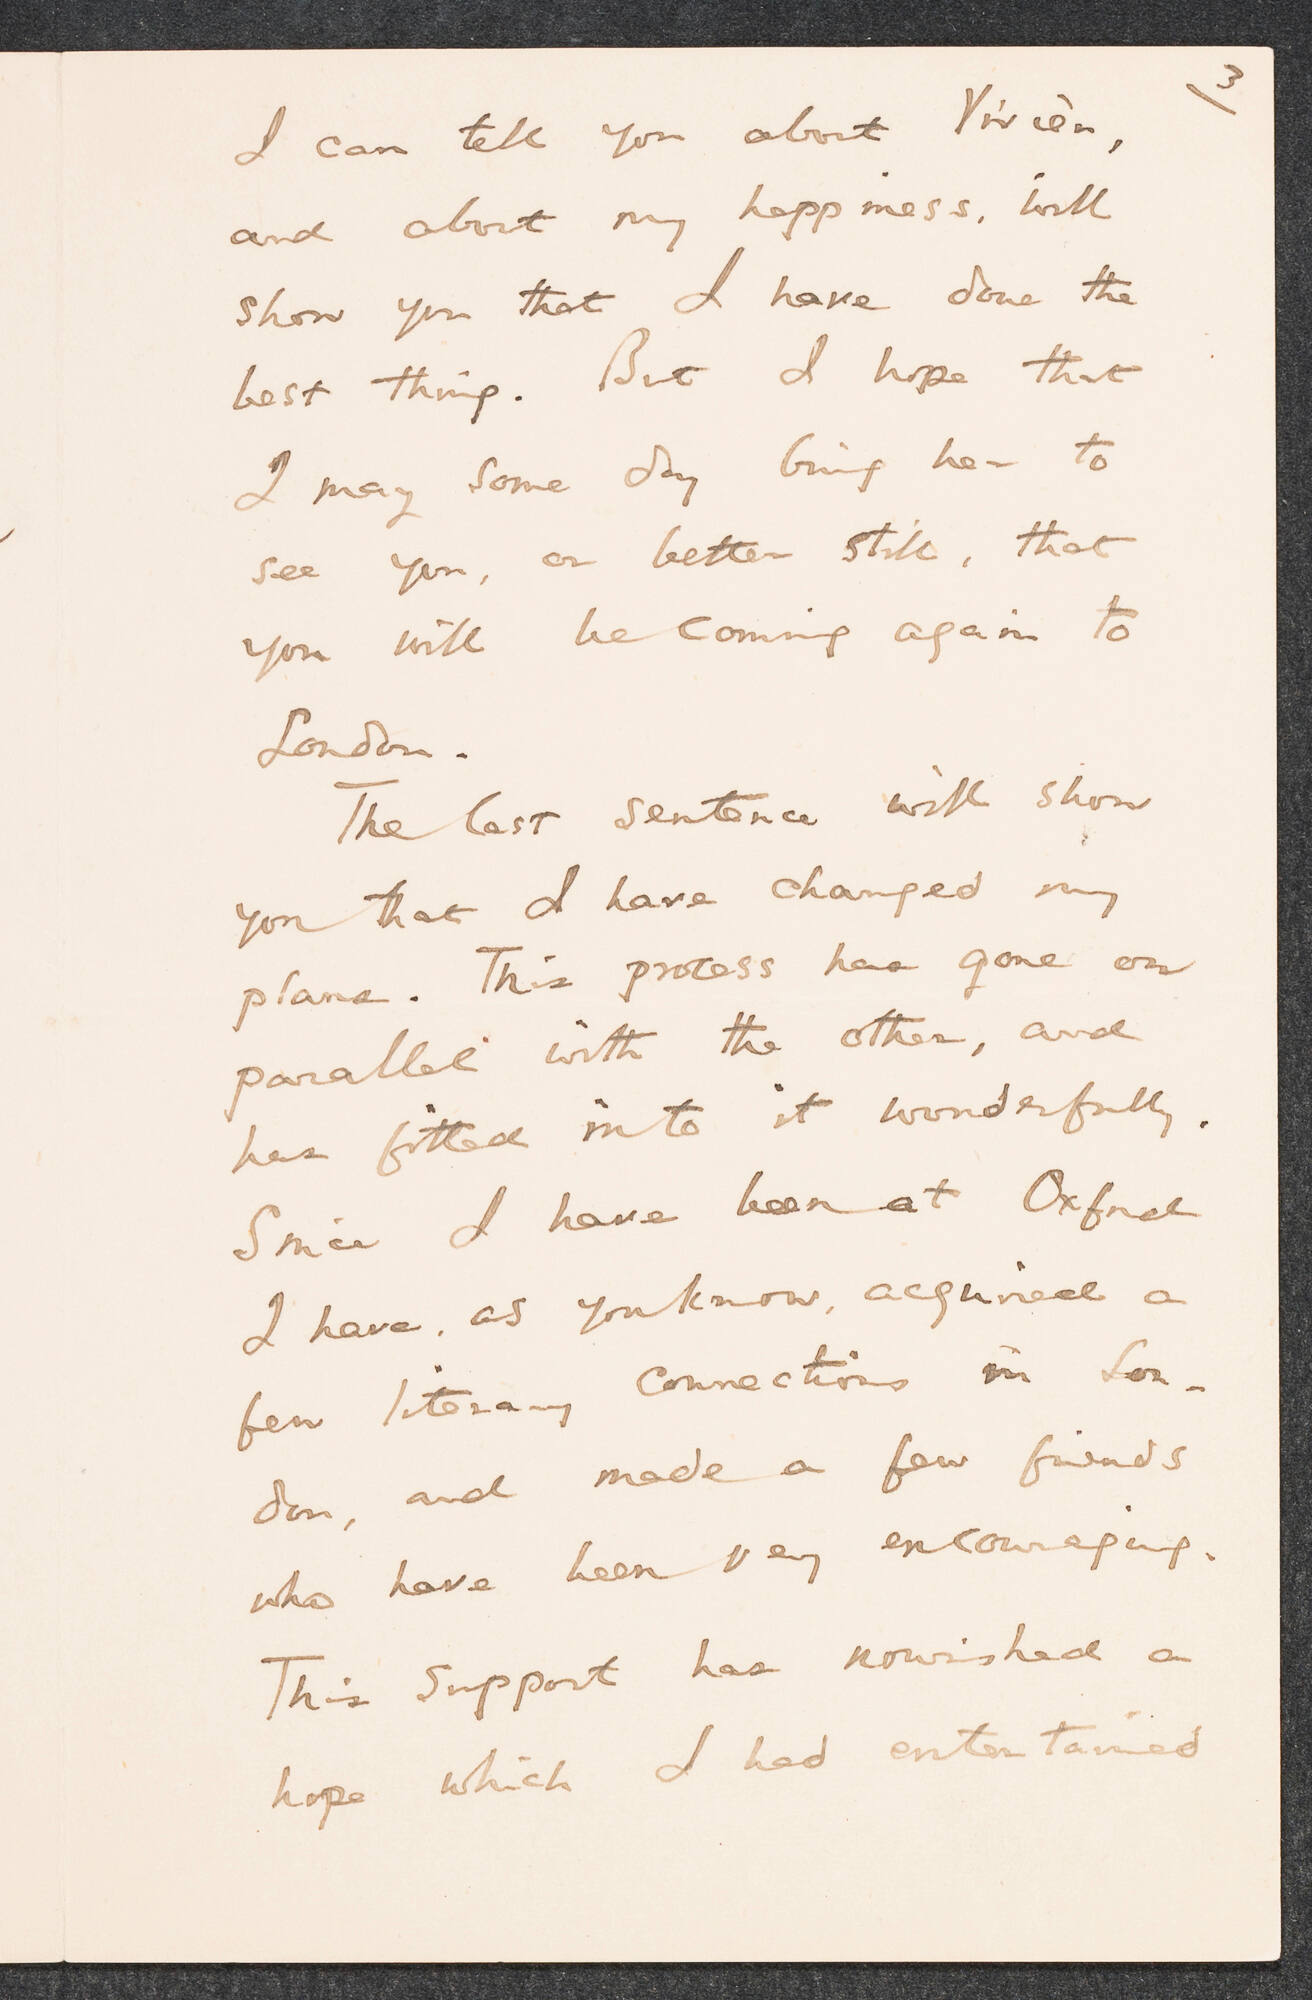 3
I can tell you about Vivien,
and about my happiness, will
show you that I have done the
best thing. But I hope that
I may some day bring her to
see you, or better still, that
you will be coming again to
London.
The last sentence will show
you that I have changed my
plans. This process has gone on
parallel with the other, and
has fitted into it wonderfully.
Since I have been at Oxford
I have, as you know, acquired a
few literary connections in Lon-
don, and made a few friends
who have been very encouraging.
This support has nourished a
hope which I had entertained